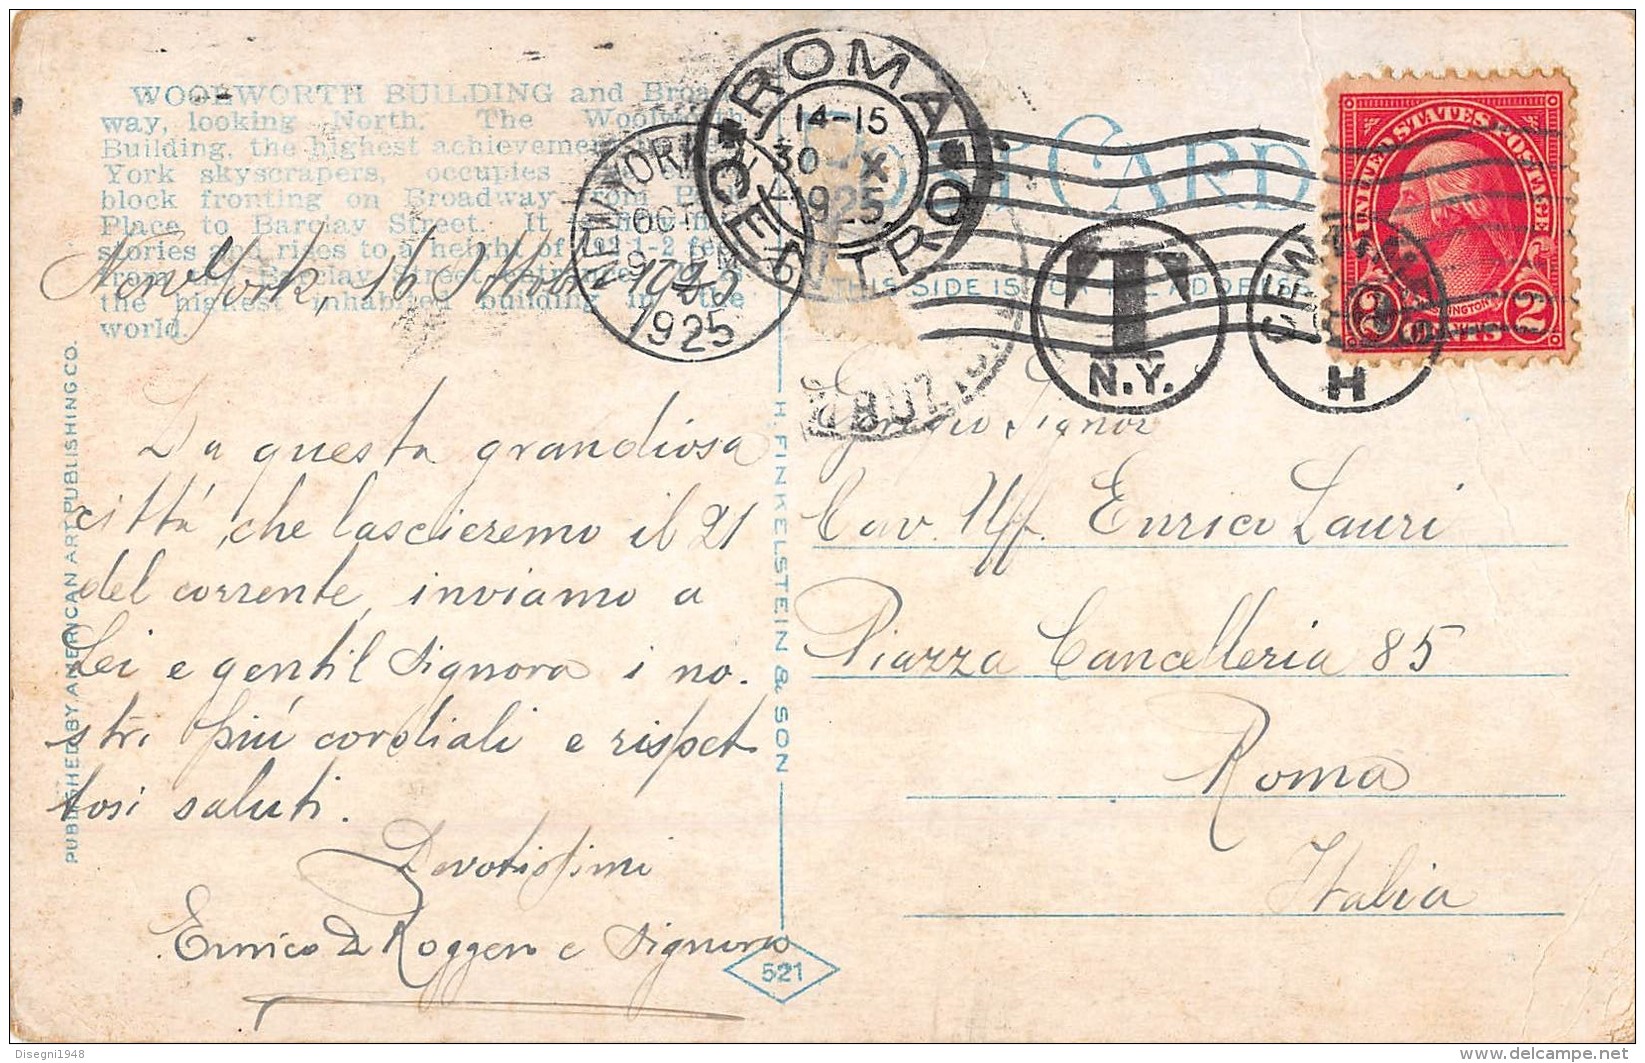 WOOLWORTH BUILDING and Broad-
way, looking North. The Woolworth
Building, the highest achievement
York skyscrapers, occupies
block fronting on Broadway from
Place to Barclay Street. It
stories and rises to a height of 792 1-2 feet
from the Barclay Street entrance.
the highest inhabited building in the
world.
New York, 16 Ottobre 1925
Da questa grandiosa
città, che lascieremo il 21
del corrente, inviamo a
Lei e gentil Signora i no-
stri più cordiali e rispet
tosi saluti.
Devotissimi
Enrico e Signora
PUBLISHED BY AMERICAN ART PUBLISHING CO.
H. FINKELSTEIN & SON
521
POST CARD
THIS SIDE IS FOR THE ADDRESS
ROMA
CENTRO
14-15
30 X
1925
NEW YORK
OCT
1925
T
N.Y.
CENTIMES
H
UNITED STATES POSTAGE
WASHINGTON
2 CENTS 2
Egregio Signor
Cav. Uff. Enrico Lauri
Piazza Cancelleria 85
Roma
Italia
Disegni1948
delcampe.net